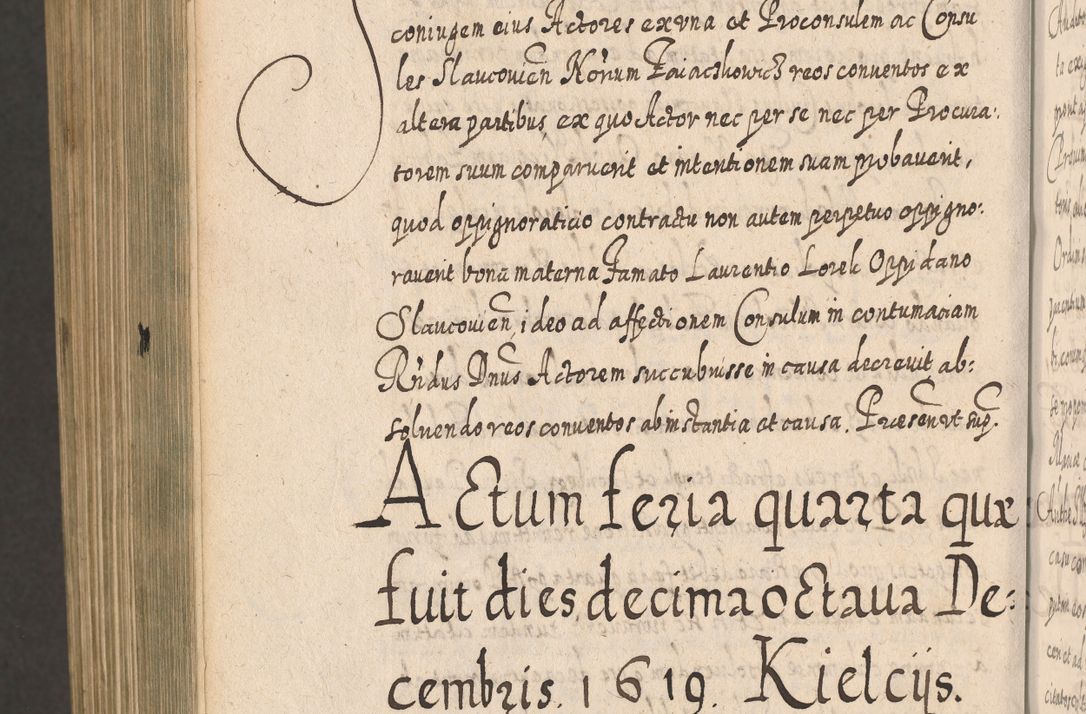 coniugem eius Actores ex vna et Proconsulem ac Consu
les Slaucouien Norium Zaiaczkowicz reos conuentos ex
altera partibus, ex quo Actor nec per se nec per Procura:
torem suum comparuerit et intentionem suam probauerit,
quod oppignoraticio contractu non autem perpetuo oppigno:
rauerit bona materna Famato Laurentio Lorek Oppidano
Slaucouien, ideo ad affectionem Consulum in contumaciam
Rndus Dnus Actorem succubuisse in causa decreuit ab:
soluendo reos conuentos ab instantia et causa. Præsen vt sup.
Actum feria quarta quæ
fuit dies decima octaua De:
cembris. 1619. Kielcijs.